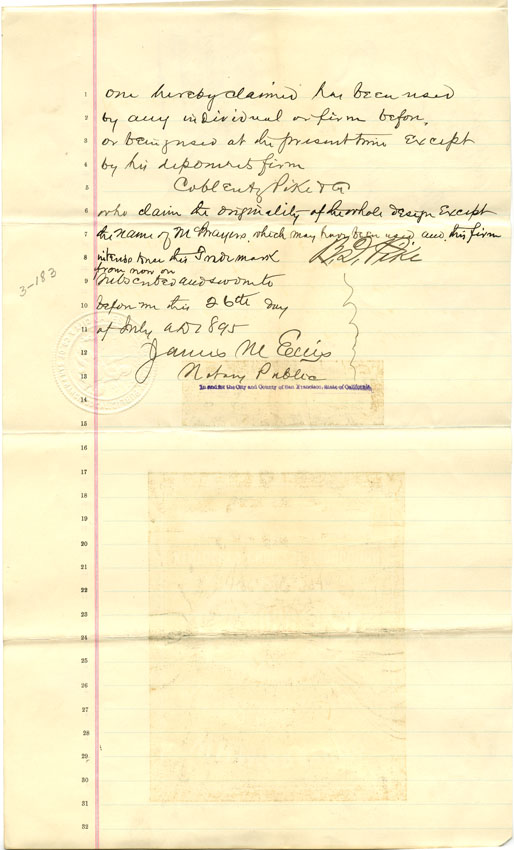 one hereby claimed has been used
by any individual or firm before,
or being used at the present time Except
by his deponents firm
Coblentz Pike & Co
who claim the originality of the whole design Except
the name of M Brayers, which may have been used and this firm
intends to use this Trademark
from now on
3-183
Subscribed and sworn to
before me this 26th day
of July A.D. 1895
B. D. Pike
James M Ellis
Notary Public
In and for the City and County of San Francisco, State of California.
1
2
3
4
5
6
7
8
9
10
11
12
13
14
15
16
17
18
19
20
21
22
23
24
25
26
27
28
29
30
31
32